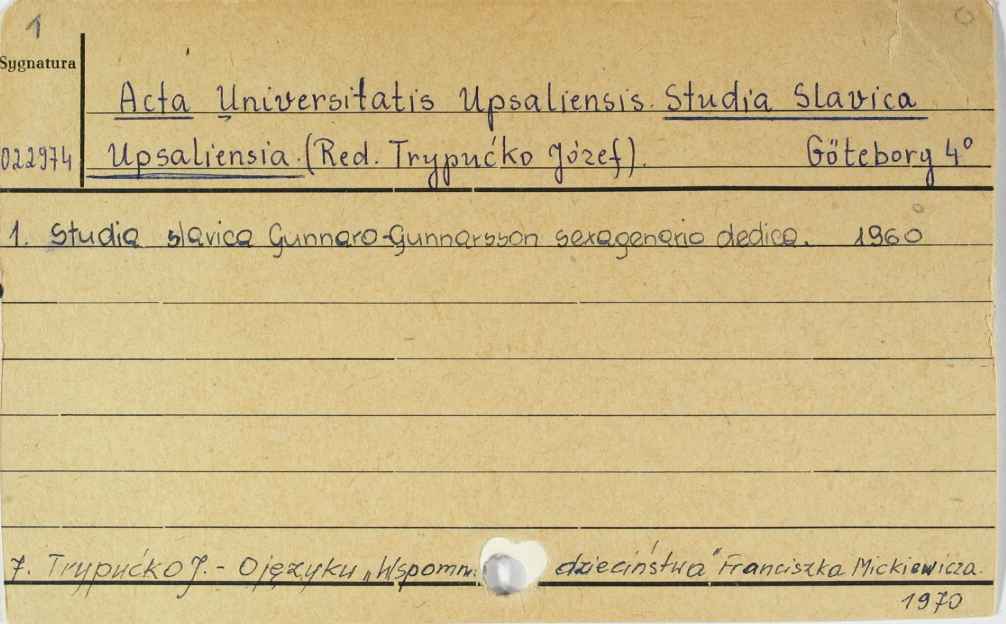 1
Sygnatura
Acta Universitatis Upsaliensis. Studia Slavica
022974 Upsaliensia. (Red. Trypućko Józef). Göteborg 4°
1. Studia slavica Gunnaro-Gunnarsson sexagenario dedica. 1960
7. Trypućko J. - O języku „Wspomn. dzieciństwa" Franciszka Mickiewicza.
1970